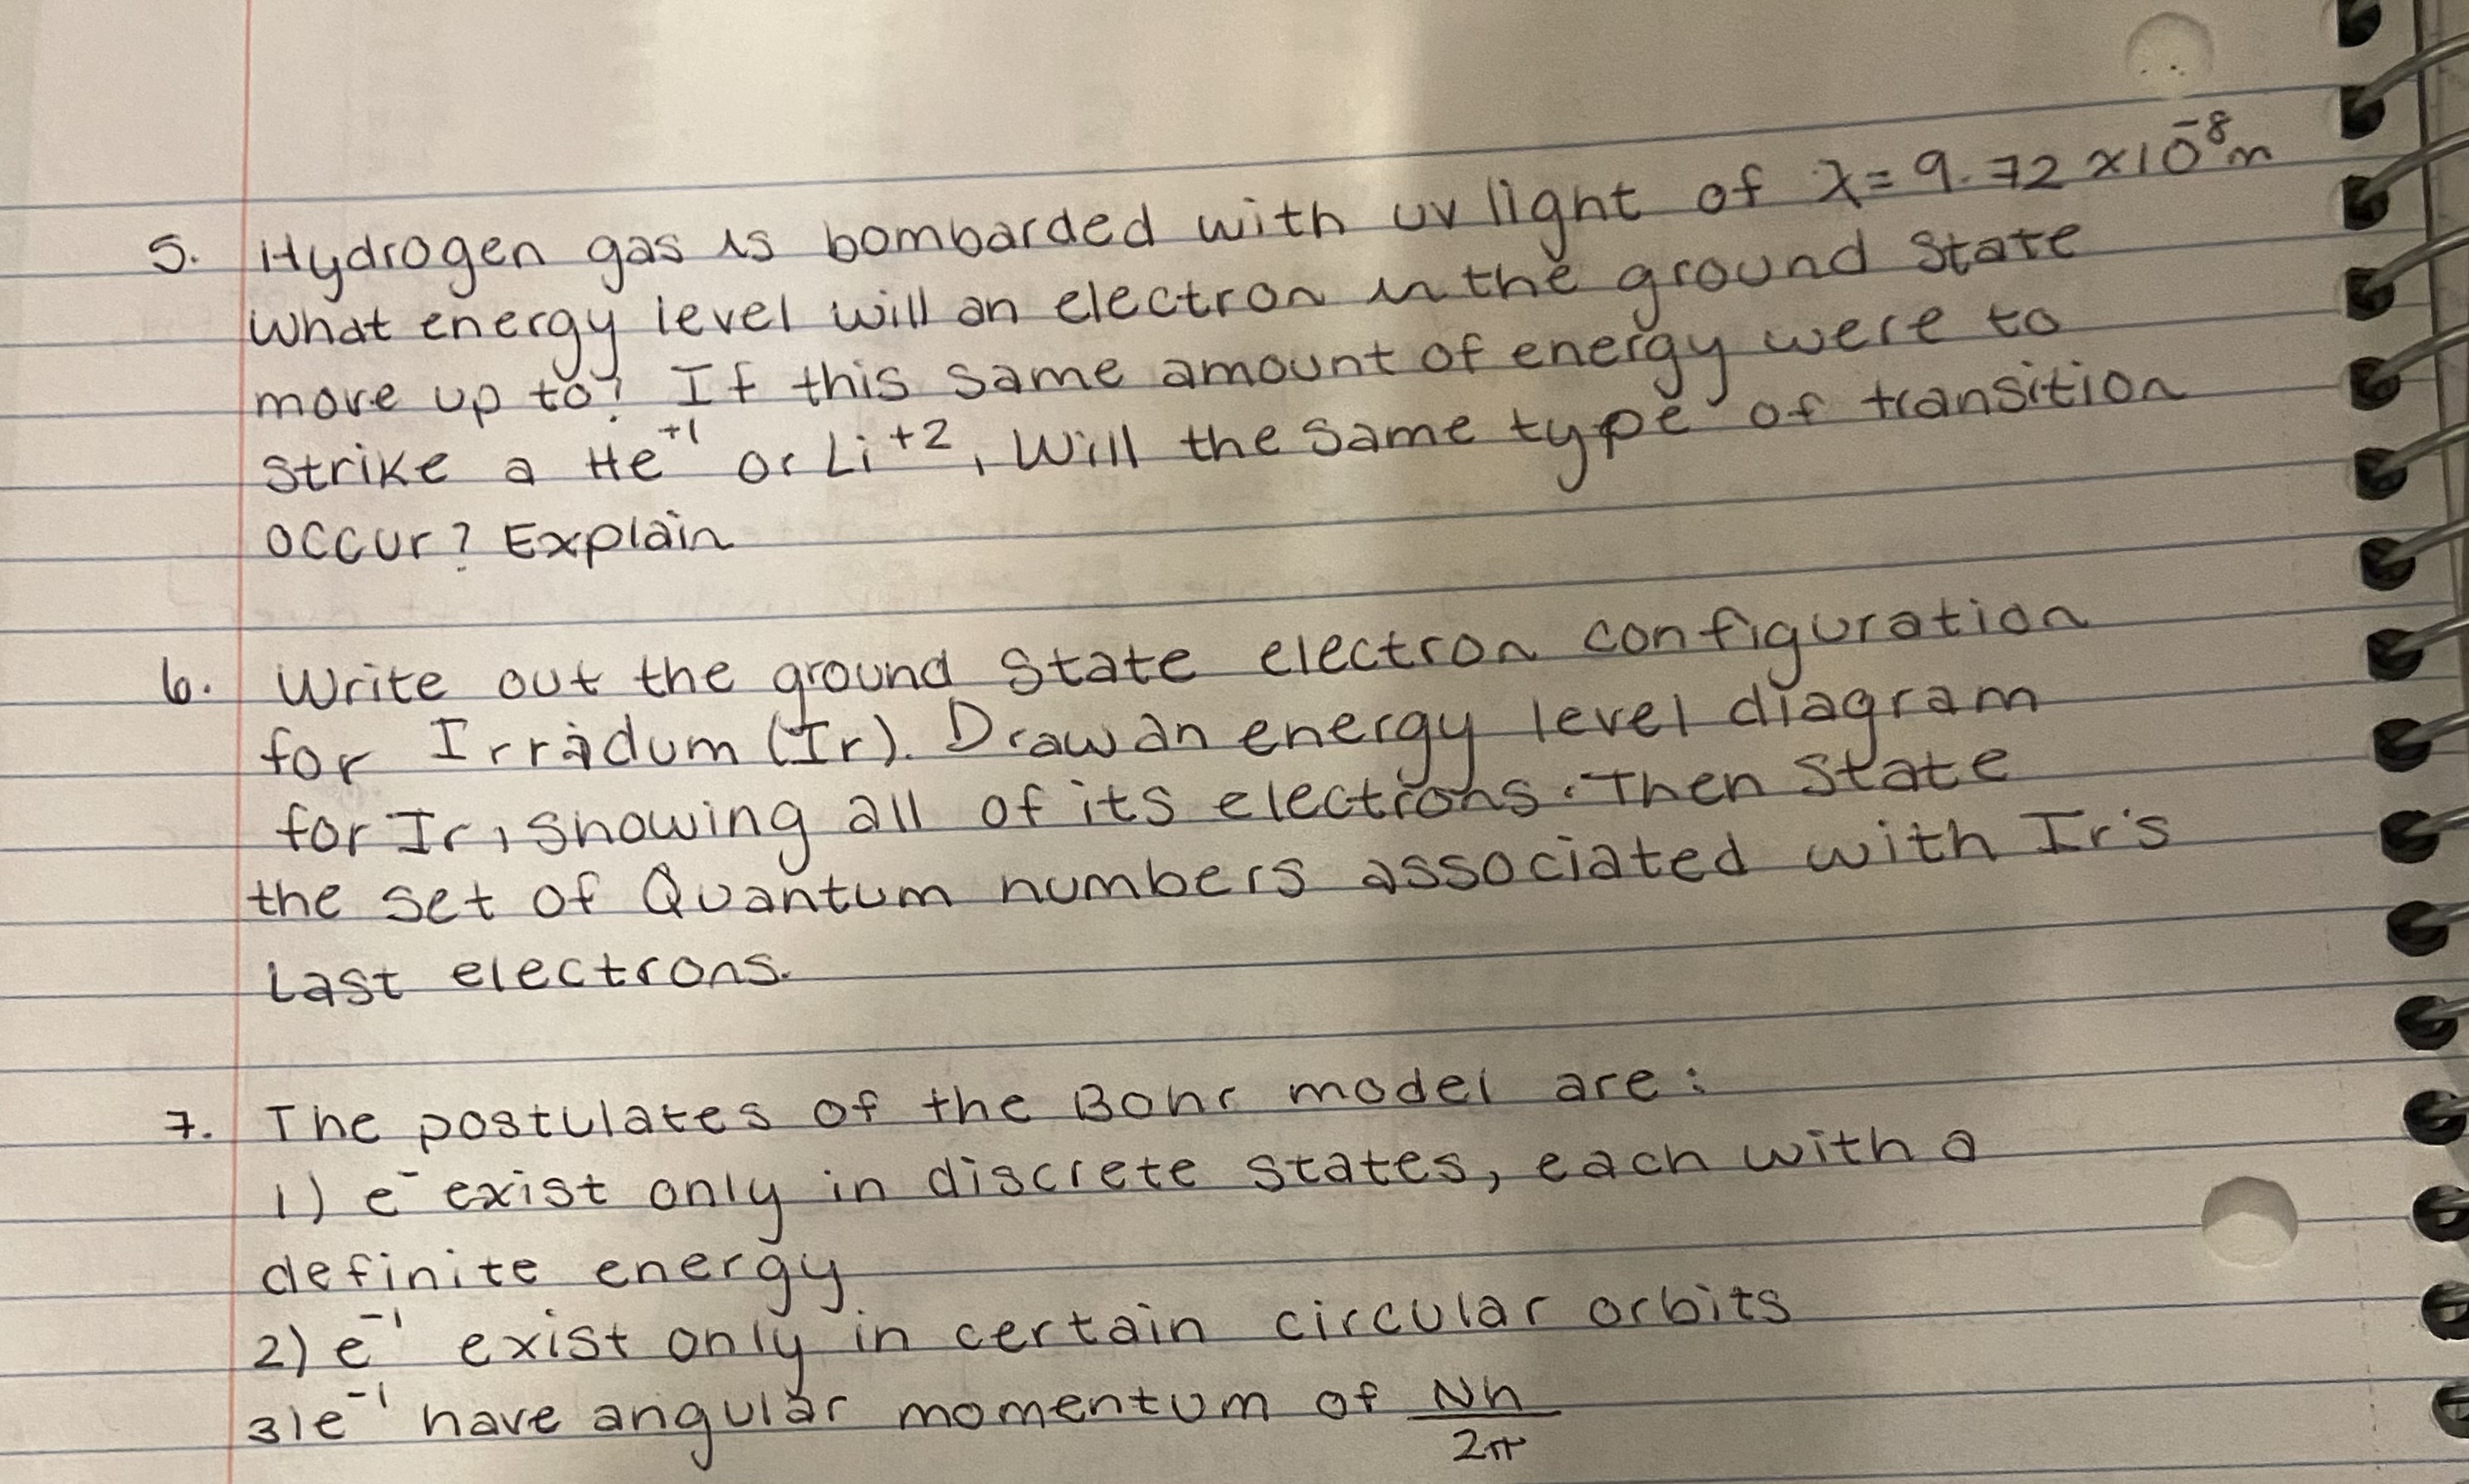 5. Hydrogen gas is bombarded with uv light of λ = 9.72 x 10⁻⁸m
What energy level will an electron in the ground state
move up to? If this same amount of energy were to
strike a He⁺¹ or Li⁺², Will the same type of transition
occur? Explain
6. Write out the ground state electron configuration
for Irradum (Ir). Draw an energy level diagram
for Ir, showing all of its electrons. Then state
the set of Quantum numbers associated with Ir's
Last electrons.
7. The postulates of the Bohr model are:
1) e⁻ exist only in discrete states, each with a
definite energy
2) e⁻¹ exist only in certain circular orbits
3) e⁻¹ have angular momentum of Nh/2π